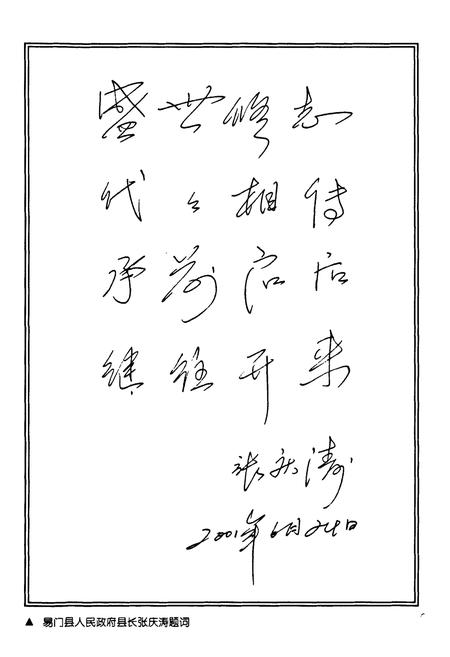 盛世修志
代々相传
承前启后
继往开来
张庆涛
2001年6月22日
▲ 易门县人民政府县长张庆涛题词